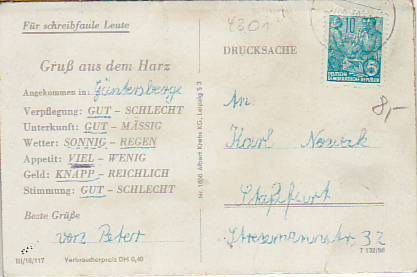 Für schreibfaule Leute
Gruß aus dem Harz
Angekommen in: Güntersberge
Verpflegung: GUT – SCHLECHT
Unterkunft: GUT – MÄSSIG
Wetter: SONNIG – REGEN
Appetit: VIEL – WENIG
Geld: KNAPP – REICHLICH
Stimmung: GUT – SCHLECHT
Beste Grüße
von Peter
III/18/117 Verbraucherpreis DM 0,40
Nr. 1656 Albert Krebs KG., Leipzig S 3
4301
DRUCKSACHE
10
DEUTSCHE
DEMOKRATISCHE REPUBLIK
8,-
An
Karl Nowak
Staßfurt
Stresemannstr. 32
T 132/56